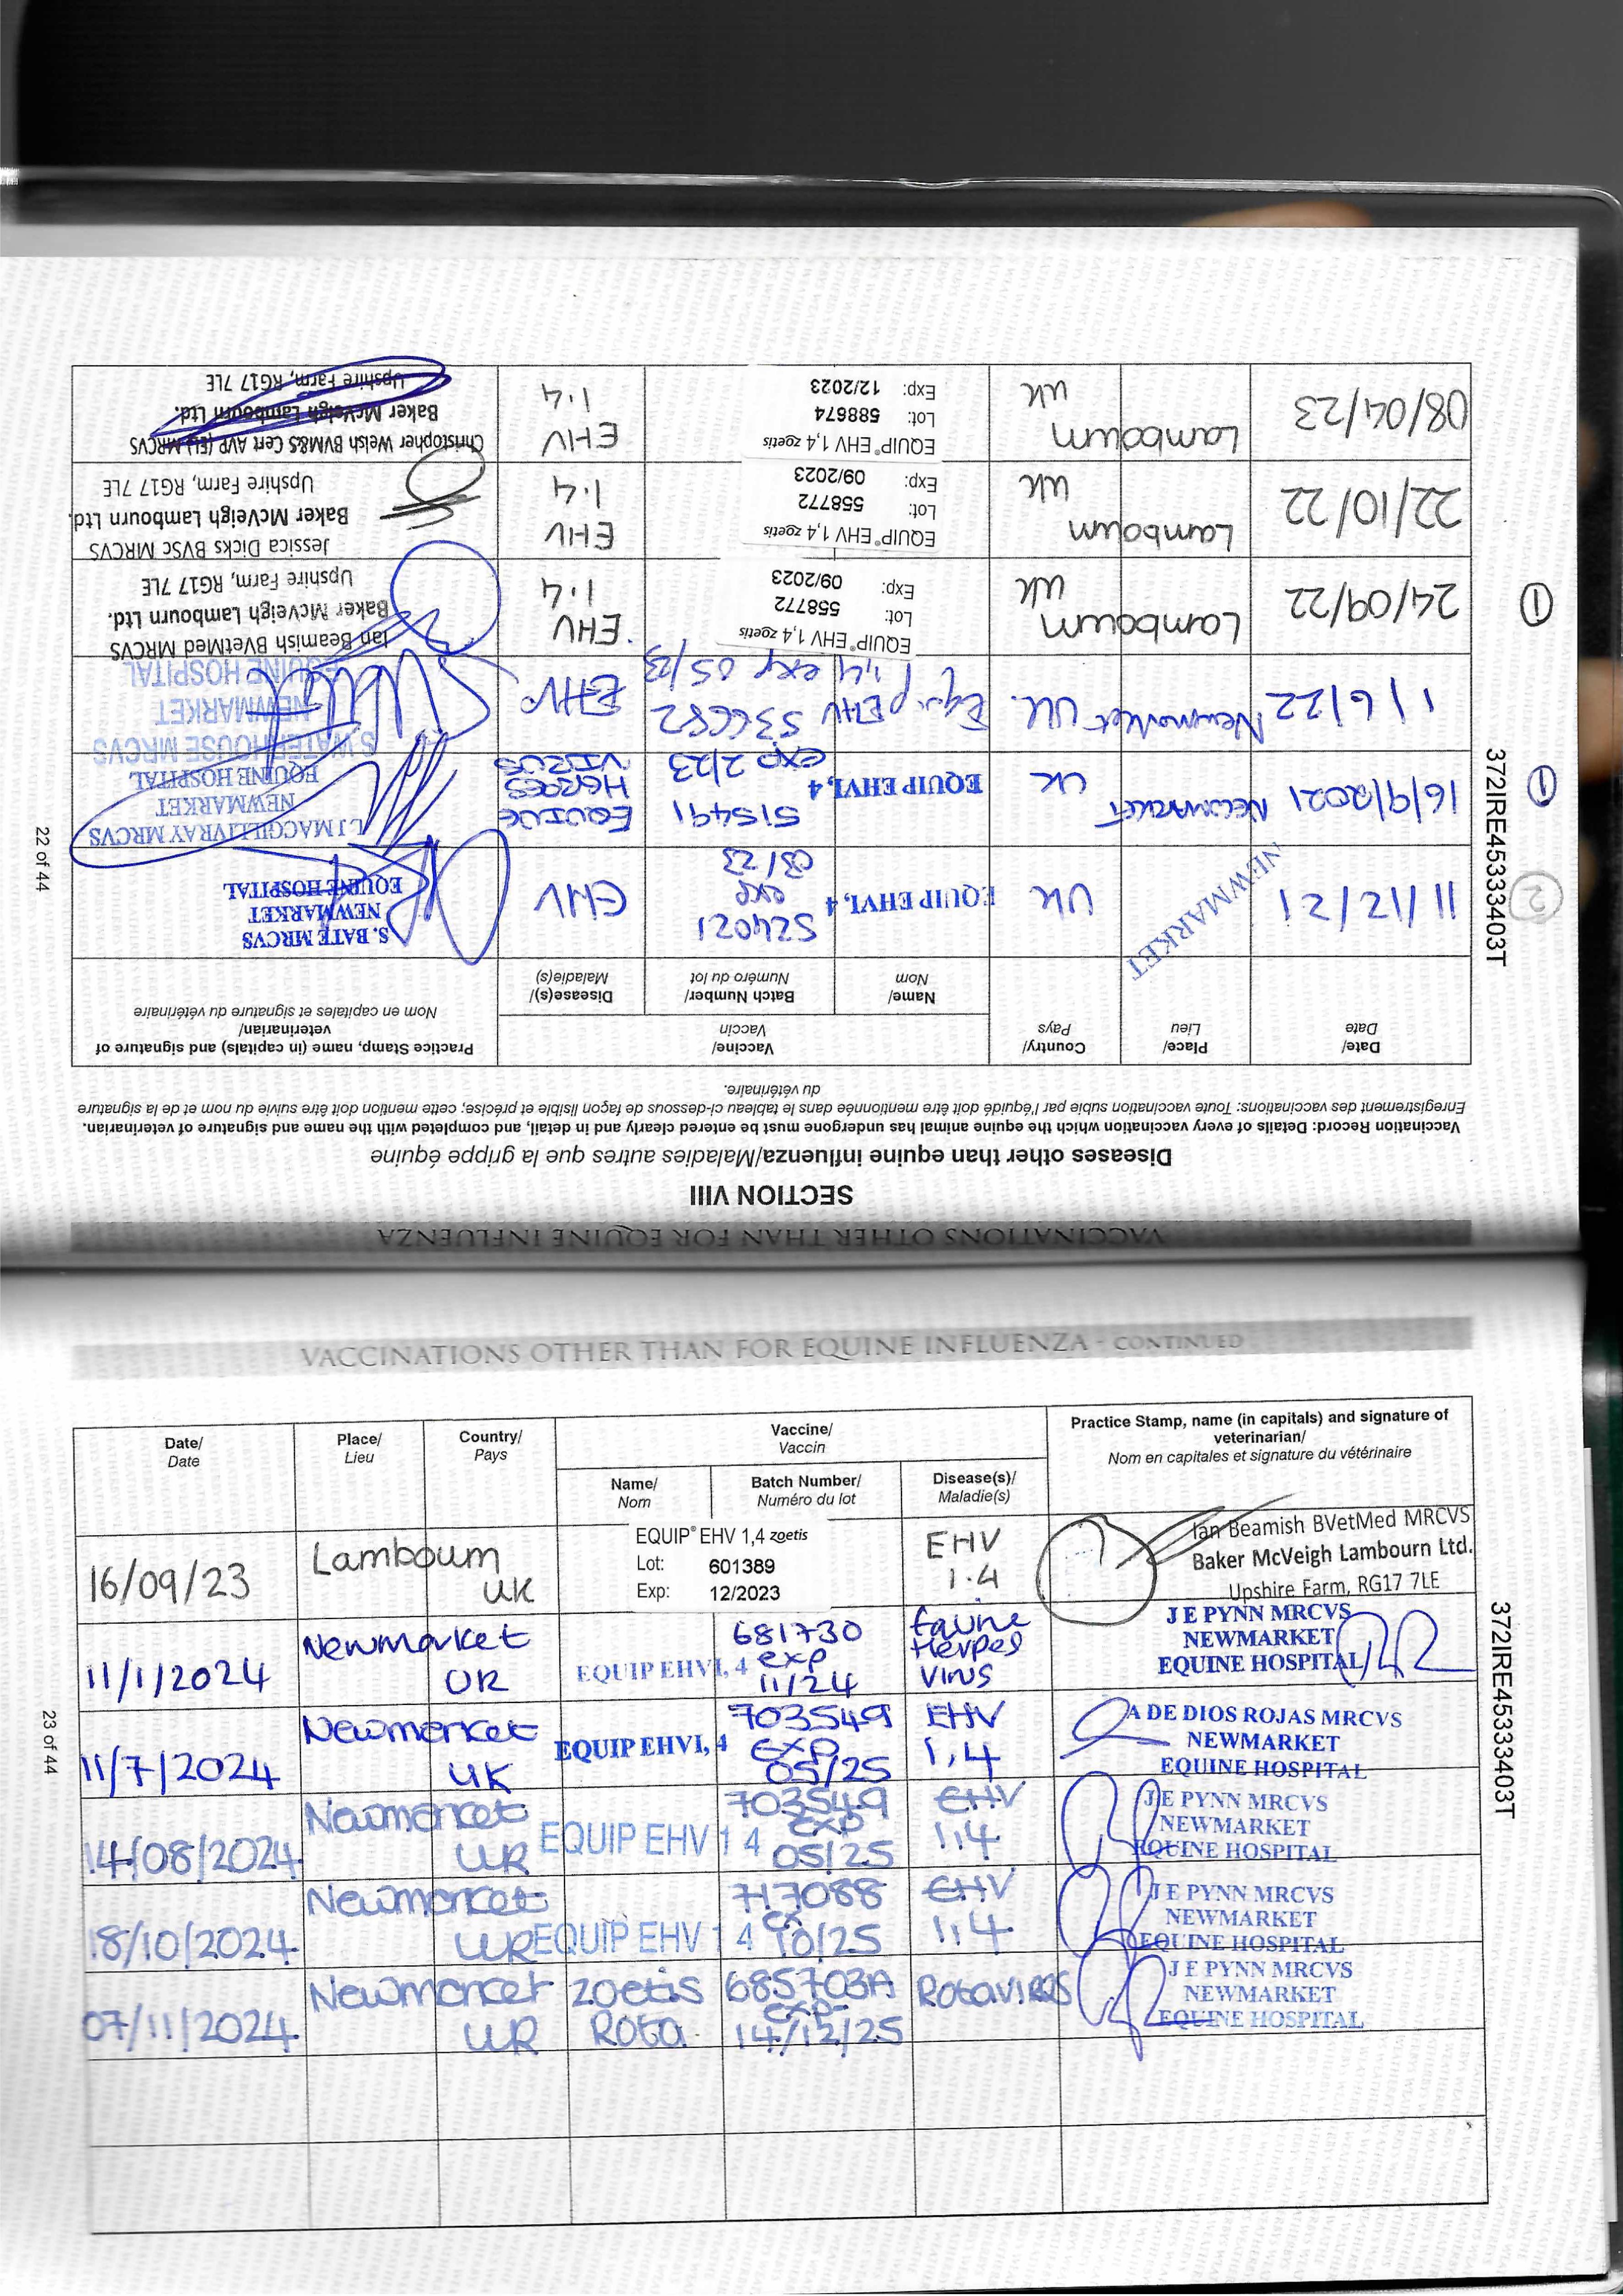 VACCINATIONS OTHER THAN FOR EQUINE INFLUENZA
SECTION VIII
Diseases other than equine influenza/Maladies autres que la grippe équine
Vaccination Record: Details of every vaccination which the equine animal has undergone must be entered clearly and in detail, and completed with the name and signature of veterinarian.
Enregistrement des vaccinations: Toute vaccination subie par l'équidé doit être mentionnée dans le tableau ci-dessous de façon lisible et précise; cette mention doit être suivie du nom et de la signature
du vétérinaire.
Date/
Date
Place/
Lieu
Country/
Pays
Vaccine/
Vaccin
Name/
Nom
Batch Number/
Numéro du lot
Disease(s)/
Maladie(s)
Practice Stamp, name (in capitals) and signature of
veterinarian/
Nom en capitales et signature du vétérinaire
11/12/21
NEWMARKET
UK
EQUIP EHV1, 4
524021
exp
03/23
EHV
S. BATE MRCVS
NEWMARKET
EQUINE HOSPITAL
16/9/2021
NEWMARKET
UK
EQUIP EHV1, 4
515491
exp 2/23
EQUINE
HERPES
VIRUS
L J MACGILLIVRAY MRCVS
NEWMARKET
EQUINE HOSPITAL
1/6/22
Newmarket
UK.
Equip EHV
1,4
536682
exp 05/23
EHV
S WATERHOUSE MRCVS
NEWMARKET
EQUINE HOSPITAL
24/09/22
Lambourn
UK
EQUIP® EHV 1,4 zoetis
Lot: 558772
Exp: 09/2023
EHV
1·4
Ian Beamish BVetMed MRCVS
Baker McVeigh Lambourn Ltd.
Upshire Farm, RG17 7LE
22/10/22
Lambourn
UK
EQUIP® EHV 1,4 zoetis
Lot: 558772
Exp: 09/2023
EHV
1·4
Jessica Dicks BVSC MRCVS
Baker McVeigh Lambourn Ltd.
Upshire Farm, RG17 7LE
08/04/23
Lambourn
UK
EQUIP® EHV 1,4 zoetis
Lot: 588674
Exp: 12/2023
EHV
1·4
Christopher Welsh BVM&S Cert AVP (EL) MRCVS
Baker McVeigh Lambourn Ltd.
Upshire Farm, RG17 7LE
1
1
2
372IRE45333403T
22 of 44
VACCINATIONS OTHER THAN FOR EQUINE INFLUENZA - CONTINUED
Date/
Date
Place/
Lieu
Country/
Pays
Vaccine/
Vaccin
Name/
Nom
Batch Number/
Numéro du lot
Disease(s)/
Maladie(s)
Practice Stamp, name (in capitals) and signature of
veterinarian/
Nom en capitales et signature du vétérinaire
16/09/23
Lambourn
UK
EQUIP® EHV 1,4 zoetis
Lot: 601389
Exp: 12/2023
EHV
1·4
Ian Beamish BVetMed MRCVS
Baker McVeigh Lambourn Ltd.
Upshire Farm, RG17 7LE
11/1/2024
Newmarket
UK
EQUIP EHV1, 4
681730
exp
11/24
Equine
Herpes
Virus
J E PYNN MRCVS
NEWMARKET
EQUINE HOSPITAL
11/7/2024
Newmarket
UK
EQUIP EHV1, 4
703549
exp
05/25
EHV
1,4
A DE DIOS ROJAS MRCVS
NEWMARKET
EQUINE HOSPITAL
14/08/2024
Newmarket
UK
EQUIP EHV 1 4
703549
exp
05/25
EHV
1,4
J E PYNN MRCVS
NEWMARKET
EQUINE HOSPITAL
18/10/2024
Newmarket
UK
EQUIP EHV 1 4
717088
ex
10/25
EHV
1,4
J E PYNN MRCVS
NEWMARKET
EQUINE HOSPITAL
07/11/2024
Newmarket
UK
Zoetis
Rota.
685703A
exp-
14/12/25
Rotavirus
J E PYNN MRCVS
NEWMARKET
EQUINE HOSPITAL
372IRE45333403T
23 of 44